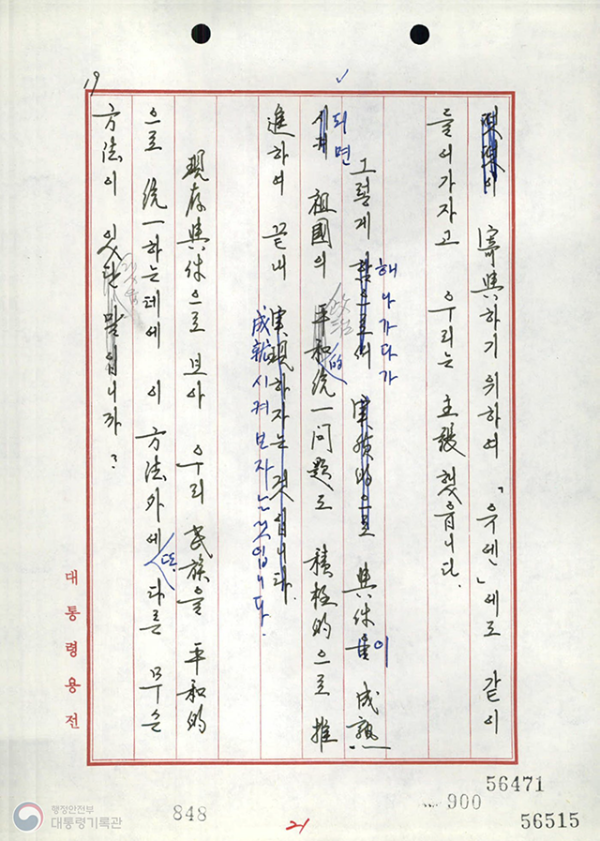 19
이 寄與하기 위하여 「유엔」에도 같이
들어가자고 우리는 主張했읍니다.
그렇게 함으로써 実質的으로 與件을 成熟
해 나가다가
이
시켜 祖國의 平和統一问題도 積極的으로 推
되면
的
進하여 끝내 実現하자는 것입니다.
成就시켜 보자는 것입니다.
現存與件으로 보아 우리 民族을 平和的
으로 統一하는데에 이 方法外에 다른 무슨
또
方法이 있단 말입니까?
대통령용전
56471
900
848
21
56515
행정안전부
대통령기록관